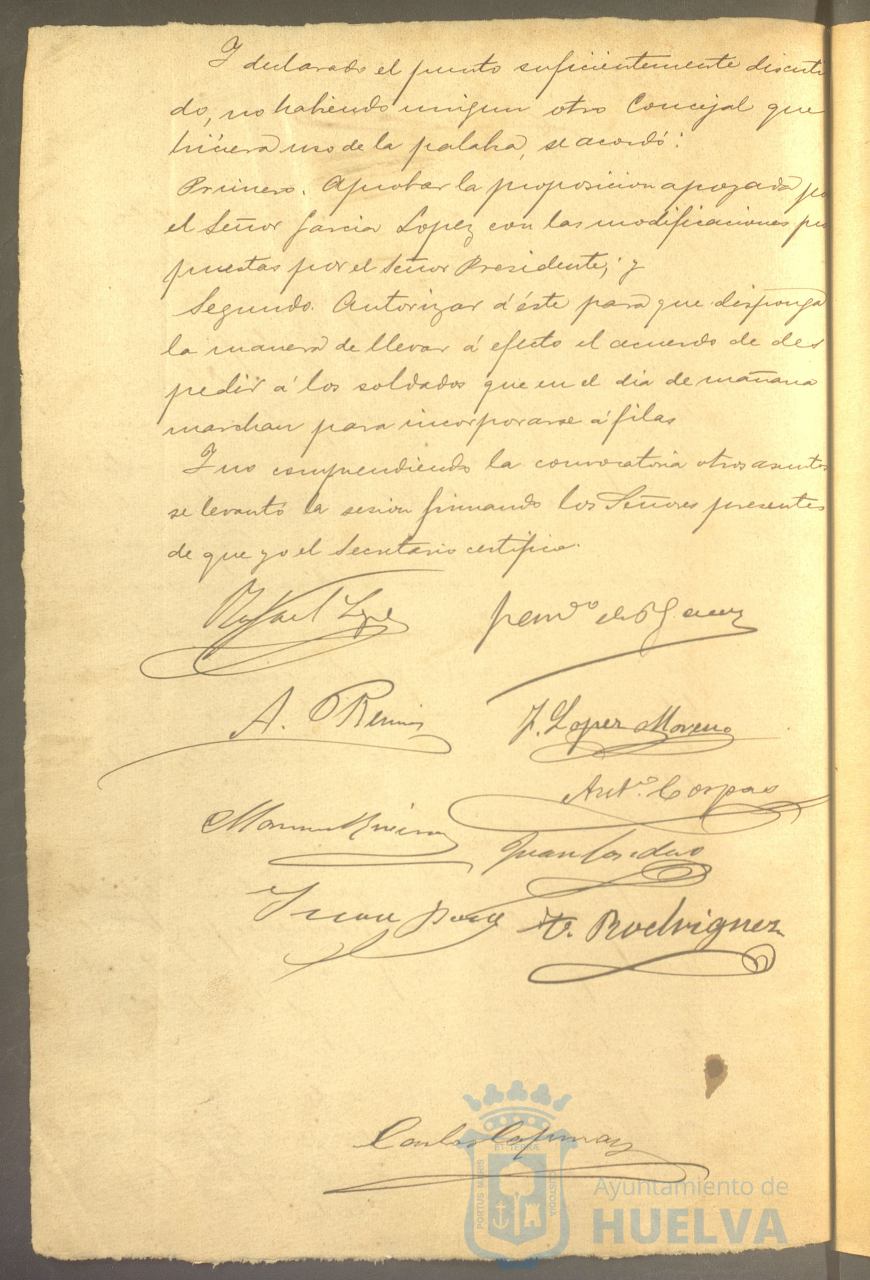 Y declarado el punto suficientemente discuti
do, no habiendo ningun otro Concejal que
hiciera uso de la palabra, se acordó:
Primero. Aprobar la proposicion apoyada po
el Señor Garcia Lopez con las modificaciones pro
puestas por el Señor Presidente; y
Segundo. Autorizar á éste para que disponga
la manera de llevar á efecto el acuerdo de des
pedir á los soldados que en el dia de mañana
marchan para incorporarse á filas
Y no comprendiendo la convocatoria otros asuntos
se levantó la sesion firmando los Señores presentes
de que yo el Secretario certifico.
Rafael Lopez
A. 
J. Lopez Moreno
Antº. Corpas
Juan
Juan
F. Rodriguez
Carlos
PORTUS MARIS
ET TERRÆ
CUSTODIA
Ayuntamiento de
HUELVA